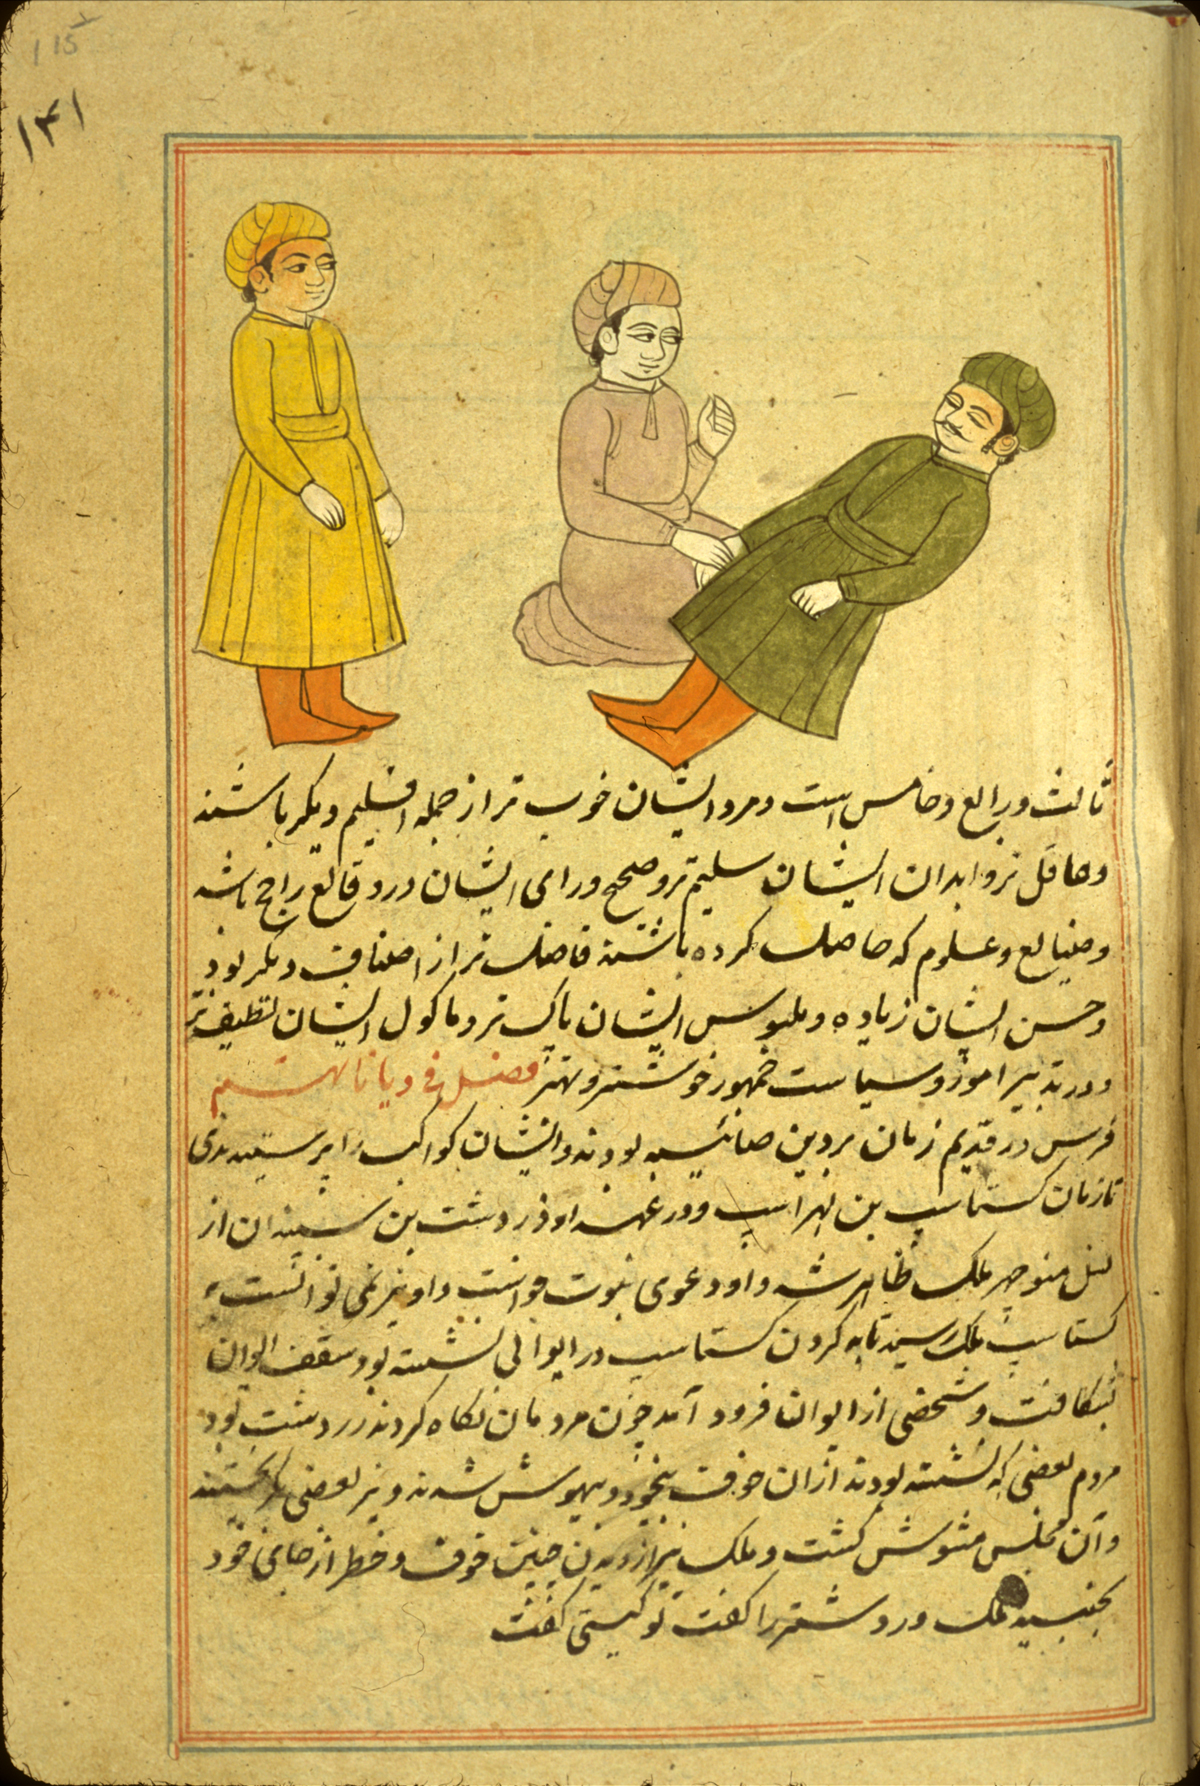 115
۱۴۱
ثالث ورابع وخامس است ومردم ایشان خوب تر از جمله اقلیم دیگر باشند
وعاقل تر وابدان ایشان سلیم تر وصحیح ورای ایشان در وقایع راجح باشد
وصنایع وعلوم که حاصل کرده باشند فاضل تر از اصناف دیگر بود
وحسن ایشان زیاده وملبوس ایشان پاک تر وماکول ایشان لطیف تر
ودر تدبیر امور وسیاست جمهور خوشتر وبهتر فصل فی دیاناتهم
فرس در قدیم زمان بر دین صائبیه بودند وایشان کواکب را پرستیدندی
تا زمان کستاسپ بن لهراسپ ودر عهد او زردشت بن از
نسل منوچهر ملک ظاهر شد واو دعوی نبوت خواست واو نیز نمی توانست
کستاسپ ملک رسید تا به کردن کستاسپ در ایوانی نشسته بود سقف ایوان
بشکافت وشخصی از ایوان فرود آمد چون مردمان نکاه کردند زردشت بود
مردم بعضی که نشسته بودند از آن خوف بیخود وبیهوش شدند ونیز بعضی بکریختند
وآن مجلس مشوش کشت وملک نیز از دیدن چنین خوف وخطر از جای خود
بجنبید ملک زردشت را کفت تو کیستی کفت